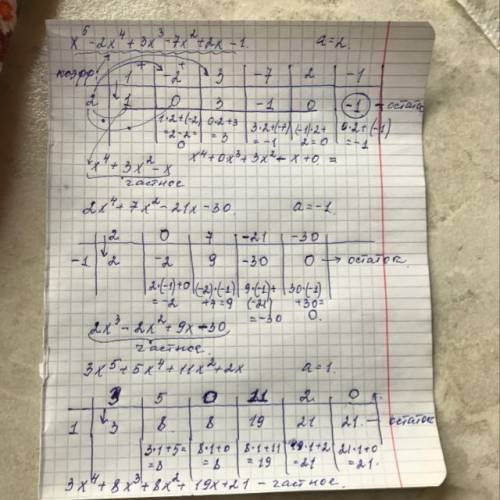 x⁵-2x⁴+3x³-7x²+2x-1. a=2.
коэфф. 1 -2 3 -7 2 -1
2 1 0 3 -1 0 -1 - остаток
1·2+(-2) 0·2+3 3·2+(-7) (-1)·2+ 0·2+(-1)
=2-2= =3 =-1 2=0 =-1
0
x⁴+3x²-x x⁴+0x³+3x²-x+0=
частное
2x⁴+7x²-21x-30. a=-1.
2 0 7 -21 -30
-1 2 -2 9 -30 0 → остаток
2·(-1)+0 (-2)·(-1) 9·(-1)+ 30·(-1)
=-2 +7=9 (-21) +30=
=-30 0.
2x³-2x²+9x-30
частное.
3x⁵+5x⁴+11x²+2x a=1.
3 5 0 11 2 0
1 3 8 8 19 21 21 - остаток
3·1+5= 8·1+0 8·1+11 19·1+2 21·1+0
=8 =8 =19 =21 =21.
3x⁴+8x³+8x²+19x+21 - частное.